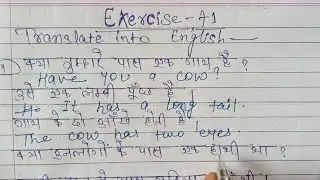 Exercise-41
Translate into English—
क्या तुम्हारे पास एक गाय है ?
Have you a cow?
उसे एक लम्बी पूँछ है।
It has a long tail.
गाय के दो आँखें होती है
The cow has two eyes.
क्या इनलोगों के पास एक हाथी था ?